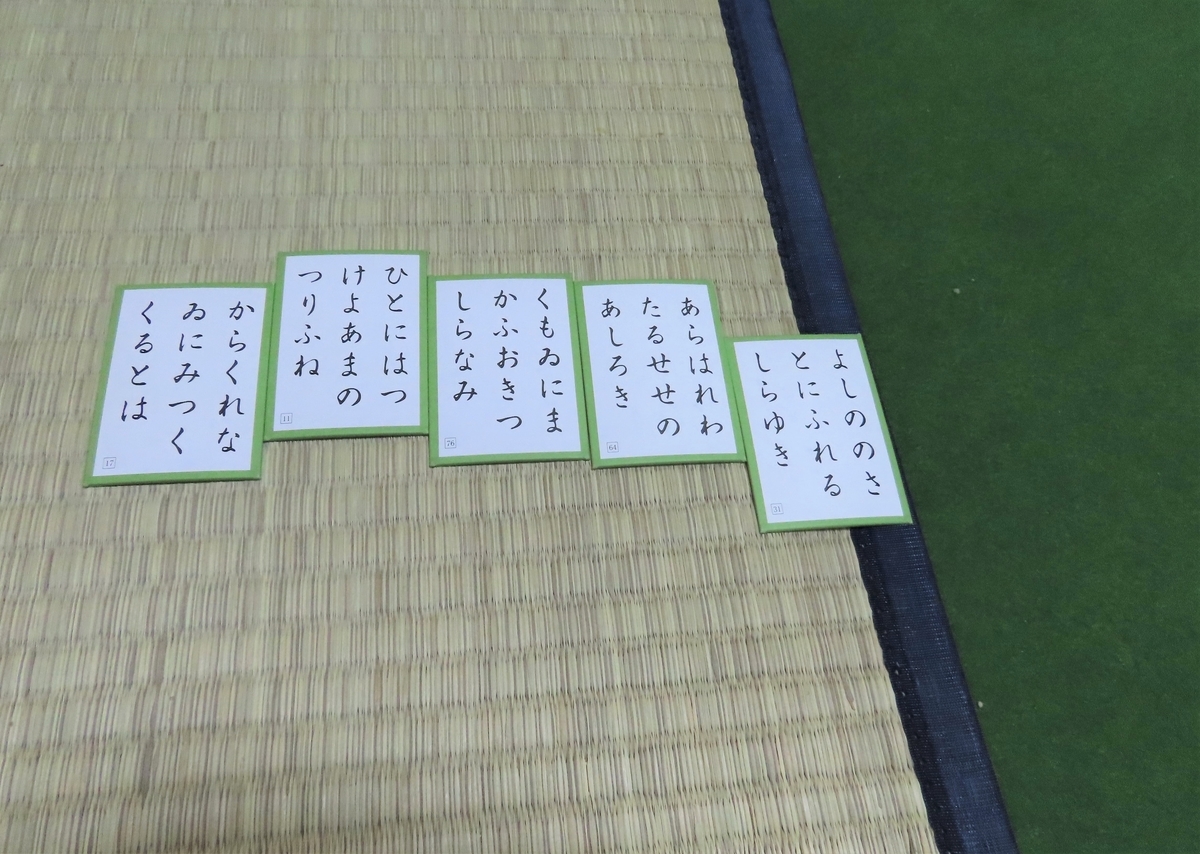 よしののさ
とにふれる
しらゆき
31
あらはれわ
たるせせの
あしろき
64
くもゐにま
かふおきつ
しらなみ
76
ひとにはつ
けよあまの
つりふね
11
からくれな
ゐにみつく
くるとは
17